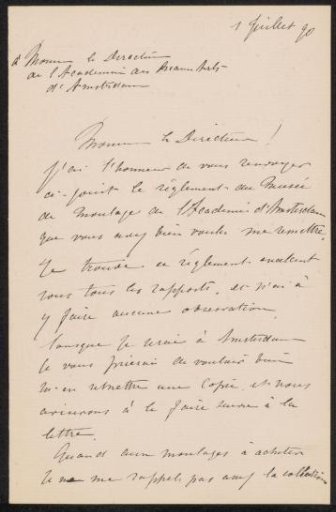 1 Juillet 90
à Monsieur le Directeur
de l'Academie des Beaux Arts
d'Amsterdam
Monsieur le Directeur!
J'ai l'honneur de vous renvoyer
ci-joint le réglement du Musée
de Moulage de l'Academie d'Amsterdam
que vous avez bien voulu me remettre.
Je trouve ce réglement excellent
sous tous les rapports, et n'ai à
y faire aucune observation.
Lorsque je serai à Amsterdam
je vous prierai de vouloir bien
m'en remettre une copie et nous
aviserons à le faire suivre à la
lettre.
Quand aux moulages à acheter
je ne me rappele pas avez la collection